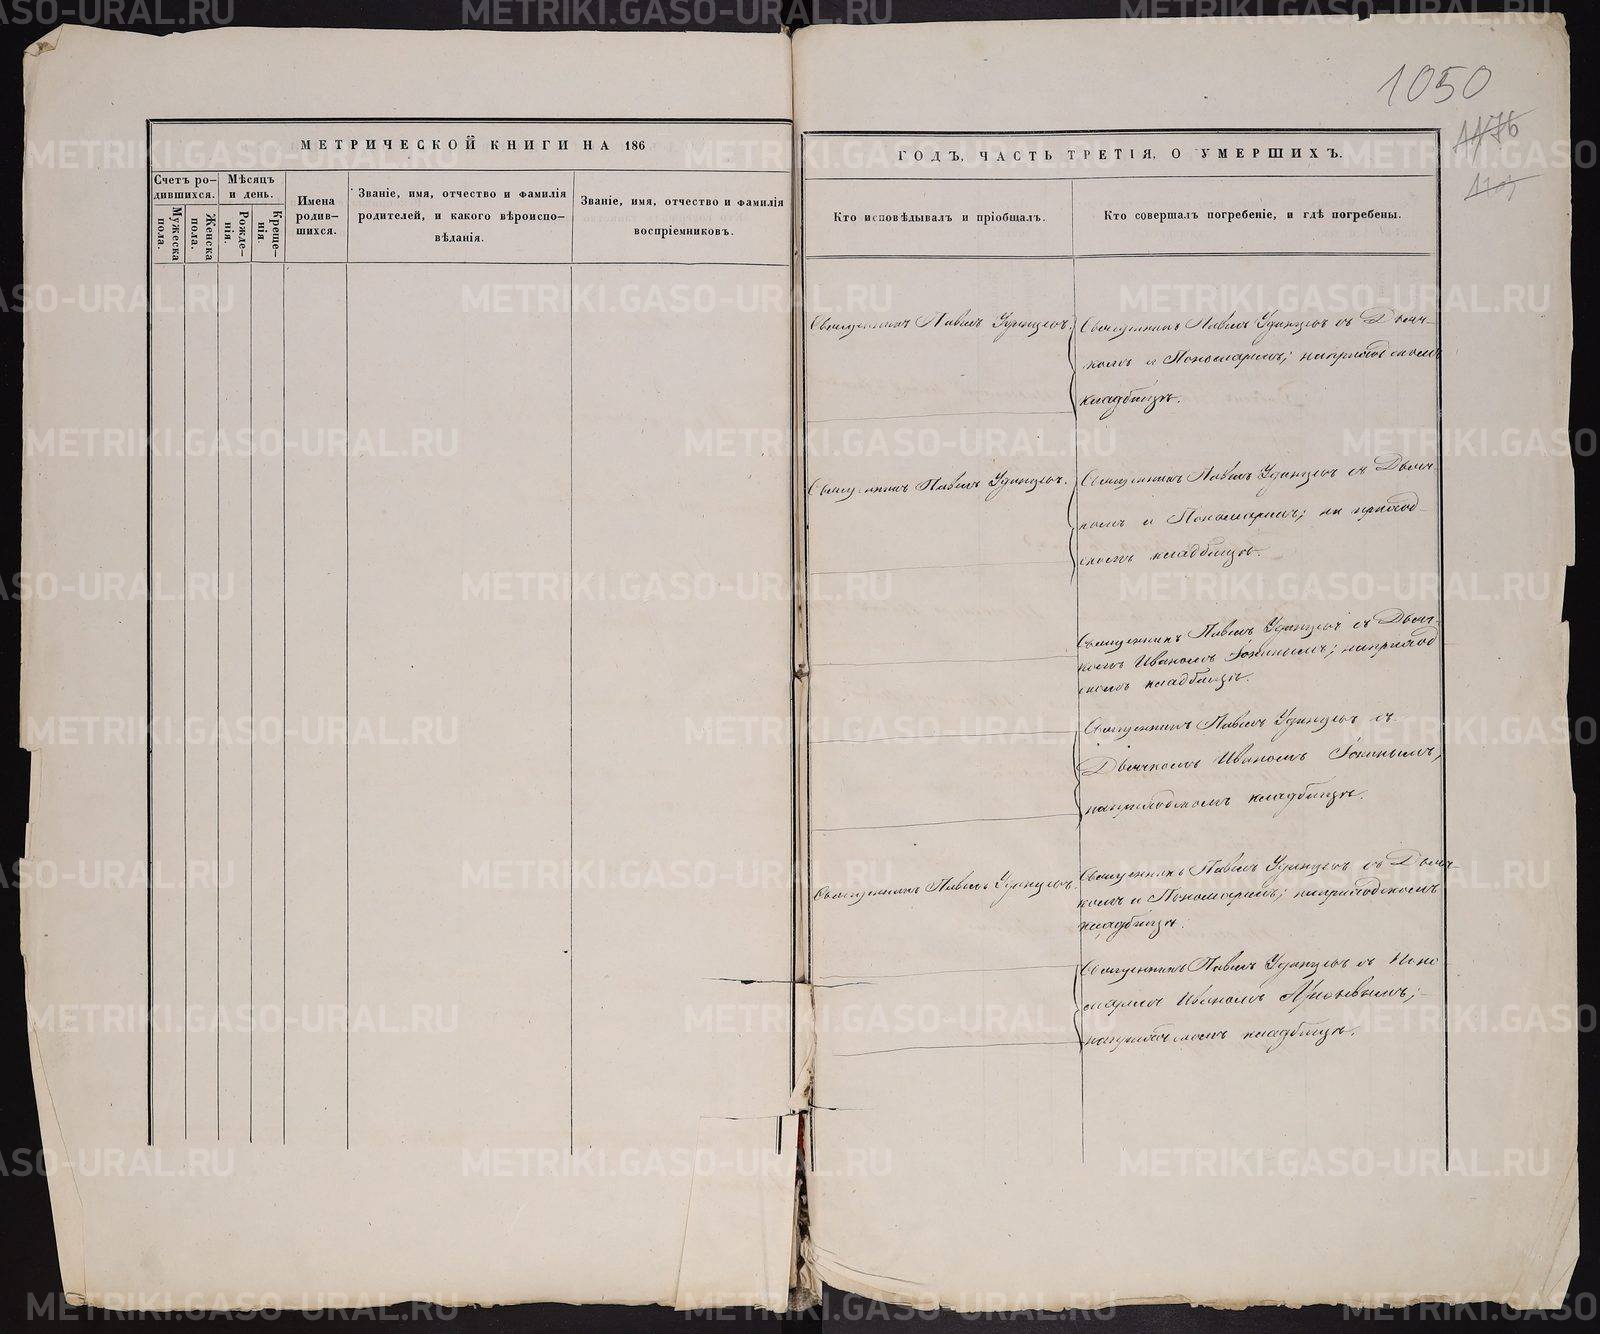 1050
1176
МЕТРИЧЕСКОЙ КНИГИ НА 186
Счетъ ро-
дившихся.
Мужеска
пола.
Женска
пола.
Мѣсяцъ
и день.
Рожде-
нія.
Креще-
нія.
Имена
родив-
шихся.
Званіе, имя, отчество и фамилія
родителей, и какого вѣроиспо-
вѣданія.
Званіе, имя, отчество и фамилія
воспріемниковъ.
ГОДЪ, ЧАСТЬ ТРЕТІЯ, О УМЕРШИХЪ.
Кто исповѣдывалъ и пріобщалъ.
Кто совершалъ погребеніе, и гдѣ погребены.
Священникъ Павелъ Удинцовъ.
Священникъ Павелъ Удинцовъ съ Дьяч-
комъ и Пономаремъ; на приходскомъ
кладбищѣ.
Священникъ Павелъ Удинцовъ.
Священникъ Павелъ Удинцовъ съ Дьяч-
комъ и Пономаремъ; на приход-
скомъ кладбищѣ.
Священникъ Павелъ Удинцовъ съ Дьяч-
комъ Иваномъ; на приход
скомъ кладбищѣ.
Священникъ Павелъ Удинцовъ съ
Дьячкомъ Иваномъ
на приходскомъ кладбищѣ.
Священникъ Павелъ Удинцовъ.
Священникъ Павелъ Удинцовъ съ Дьяч-
комъ и Пономаремъ; на приходскомъ
кладбищѣ.
Священникъ Павелъ Удинцовъ съ Поно
маремъ Иваномъ
на приходскомъ кладбищѣ.
METRIKI.GASO-URAL.RU